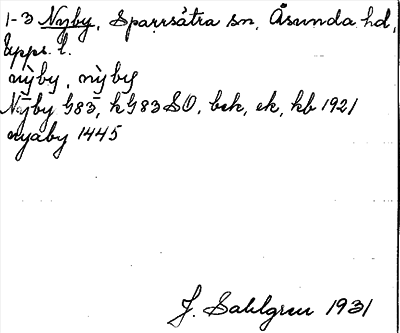 1-3 Nyby, Sparrsätra sn, Åsunda hd,
Upps. l.
nỳby, nỳby
Nyby G83, kG83 SO, bek, ek, kb 1921
nyaby 1445
J. Sahlgren 1931